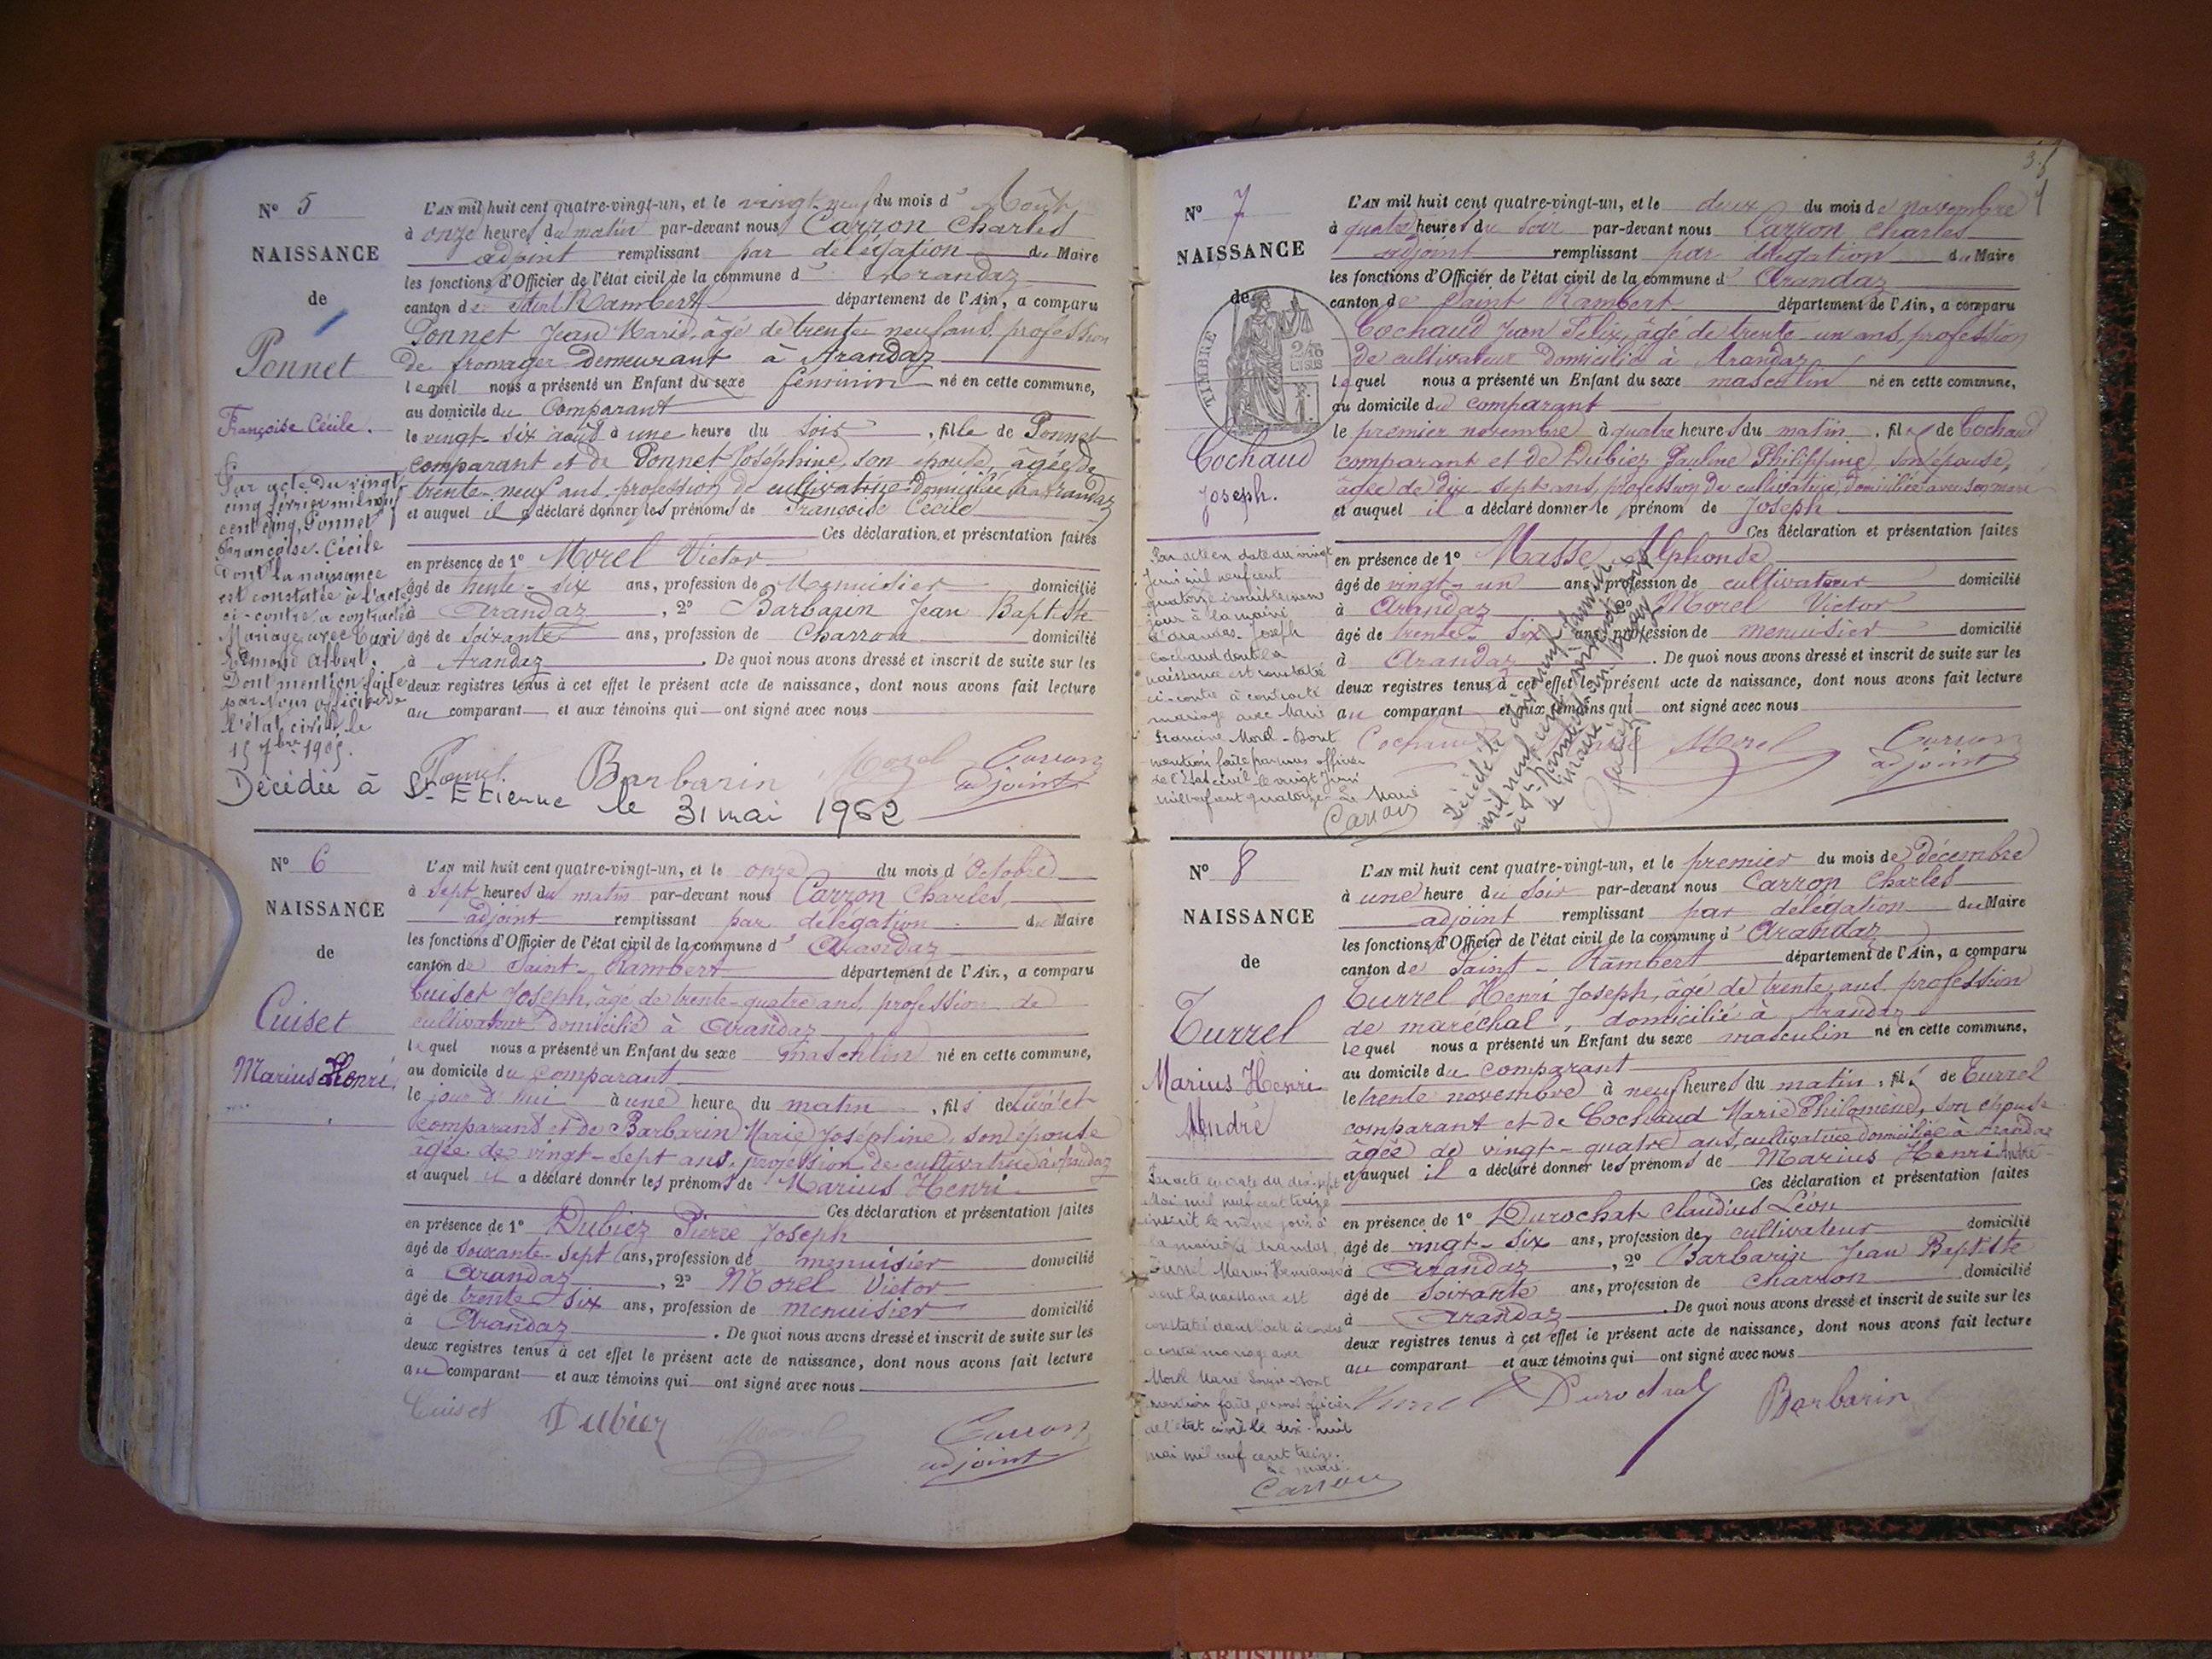 N° 5
NAISSANCE
de
Ponnet
Françoise Cécile.
Par acte du vingt
cinq février mil neuf
cent cinq, Ponnet
Françoise Cécile
dont la naissance
est constatée à l'acte
ci-contre a contracté
Mariage avec
Edmond Albert.
Dont mention faite
par Nous officier de
l'état civil le
15 7bre 1905.
Décédée à St Etienne le 31 mai 1962
L'AN mil huit cent quatre-vingt-un, et le vingt-neuf du mois d'Août
à onze heures du matin par-devant nous Carron Charles
adjoint remplissant par délégation du Maire
les fonctions d'Officier de l'état civil de la commune d'Arandaz
canton de Saint Rambert département de l'Ain, a comparu
Ponnet Jean Marie, âgé de trente neuf ans profession
de fromager demeurant à Arandaz
lequel nous a présenté un Enfant du sexe féminin né en cette commune,
au domicile du Comparant
le vingt-six août à une heure du soir, fille de Ponnet
comparant et de Ponnet Joséphine, son épouse, âgée de
trente-neuf ans profession de cultivatrice domiciliée à Arandaz
et auquel il a déclaré donner les prénoms de Francoise Cécile
Ces déclaration et présentation faites
en présence de 1° Morel Victor
âgé de trente-six ans, profession de Menuisier domicilié
à Arandaz, 2° Barbarin Jean Baptiste
âgé de soixante ans, profession de Charron domicilié
à Arandaz. De quoi nous avons dressé et inscrit de suite sur les
deux registres tenus à cet effet le présent acte de naissance, dont nous avons fait lecture
au comparant et aux témoins qui ont signé avec nous
Barbarin Morel Carron
adjoint
N° 6
NAISSANCE
de
Cuiset
Marius Henri
L'AN mil huit cent quatre-vingt-un, et le onze du mois d'Octobre
à sept heures du matin par-devant nous Carron Charles,
adjoint remplissant par délégation du Maire
les fonctions d'Officier de l'état civil de la commune d'Arandaz
canton de Saint-Rambert département de l'Ain, a comparu
Cuiset Joseph, âgé de trente-quatre ans, profession de
cultivateur domicilié à Arandaz
lequel nous a présenté un Enfant du sexe masculin né en cette commune,
au domicile du comparant
le jour d'hui à une heure du matin, fils de Cuiset
comparant et de Barbarin Marie Joséphine, son épouse
âgée de vingt-sept ans, profession de cultivatrice à Arandaz
et auquel il a déclaré donner les prénoms de Marius Henri
Ces déclaration et présentation faites
en présence de 1° Dubiez Pierre Joseph
âgé de soixante-sept ans, profession de menuisier domicilié
à Arandaz, 2° Morel Victor
âgé de trente-six ans, profession de menuisier domicilié
à Arandaz. De quoi nous avons dressé et inscrit de suite sur les
deux registres tenus à cet effet le présent acte de naissance, dont nous avons fait lecture
au comparant et aux témoins qui ont signé avec nous
Cuiset Dubiez Morel Carron
adjoint
N° 7
NAISSANCE
de
TIMBRE
Cochaud
Joseph.
Par acte en date du vingt
Juin mil neuf cent
quatorze inscrit le même
jour à la mairie
d'Arandas, Joseph
Cochaud dont la
naissance est constatée
ci-contre à contracté
mariage avec Marie
Francine Morel - Dont
mention faite par nous officier
de l'Etat civil le vingt Juin
mil neuf cent quatorze - Le Maire
Carron
L'AN mil huit cent quatre-vingt-un, et le deux du mois de novembre
à quatre heures du soir par-devant nous Carron Charles
adjoint remplissant par délégation du Maire
les fonctions d'Officier de l'état civil de la commune d'Arandaz
canton de Saint Rambert département de l'Ain, a comparu
Cochaud Jean Felix, âgé de trente-un ans, profession
de cultivateur domicilié à Arandaz
lequel nous a présenté un Enfant du sexe masculin né en cette commune,
au domicile du comparant
le premier novembre à quatre heures du matin, fils de Cochaud
comparant et de Dubiez Pauline Philippine, son épouse,
âgée de dix-sept ans, profession de cultivatrice, domiciliée avec son mari
et auquel il a déclaré donner le prénom de Joseph
Ces déclaration et présentation faites
en présence de 1° Masse Alphonse
âgé de vingt-un ans, profession de cultivateur domicilié
à Arandaz 2° Morel Victor
âgé de trente-six ans, profession de menuisier domicilié
à Arandaz. De quoi nous avons dressé et inscrit de suite sur les
deux registres tenus à cet effet le présent acte de naissance, dont nous avons fait lecture
au comparant et aux témoins qui ont signé avec nous
Cochaud Masse Morel Carron
adjoint
Décédé le
mil neuf cent
à St Rambert en Bugey
le maire
N° 8
NAISSANCE
de
Turrel
Marius Henri
André
Par acte en date du dix-sept
Mai mil neuf cent treize
inscrit le même jour à
la mairie d'Arandas,
Turrel Marius Henri André
dont la naissance est
constatée dans l'acte ci-contre
a contracté mariage avec
Morel Marie - Dont
mention faite par nous officier
de l'état civil le dix-huit
mai mil neuf cent treize.
Le maire
Carron
L'AN mil huit cent quatre-vingt-un, et le premier du mois de décembre
à une heure du soir par-devant nous Carron Charles
adjoint remplissant par délégation du Maire
les fonctions d'Officier de l'état civil de la commune d'Arandaz
canton de Saint-Rambert département de l'Ain, a comparu
Turrel Henri Joseph, âgé de trente ans profession
de maréchal, domicilié à Arandaz
lequel nous a présenté un Enfant du sexe masculin né en cette commune,
au domicile du comparant
le trente novembre à neuf heures du matin, fils de Turrel
comparant et de Cochaud Marie Philomène, son épouse
âgée de vingt-quatre ans, cultivatrice domiciliée à Arandaz
et auquel il a déclaré donner les prénoms de Marius Henri André
Ces déclaration et présentation faites
en présence de 1° Durochat Claudius Léon
âgé de vingt-six ans, profession de cultivateur domicilié
à Arandaz, 2° Barbarin Jean Baptiste
âgé de soixante ans, profession de charron domicilié
à Arandaz. De quoi nous avons dressé et inscrit de suite sur les
deux registres tenus à cet effet le présent acte de naissance, dont nous avons fait lecture
au comparant et aux témoins qui ont signé avec nous
Durochat Barbarin
ARTISTIQUE